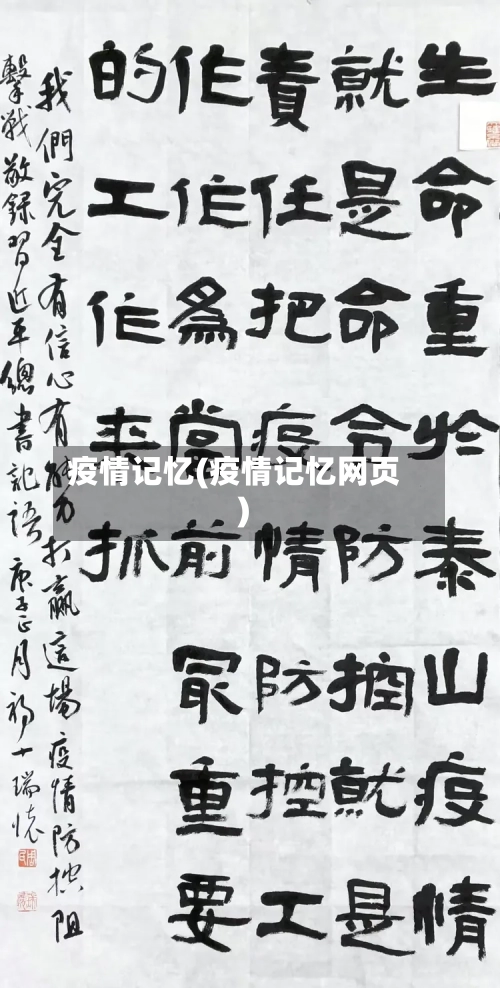 生命重於泰山疫情
就是命令防控就是
責任把疫情防控工
作作爲當前冣重要
的工作来抓
我們完全有信心有能力打贏這場疫情防控阻
擊戰敬録習近平總書記語庚子正月初十瑞
疫情记忆(疫情记忆网页
)